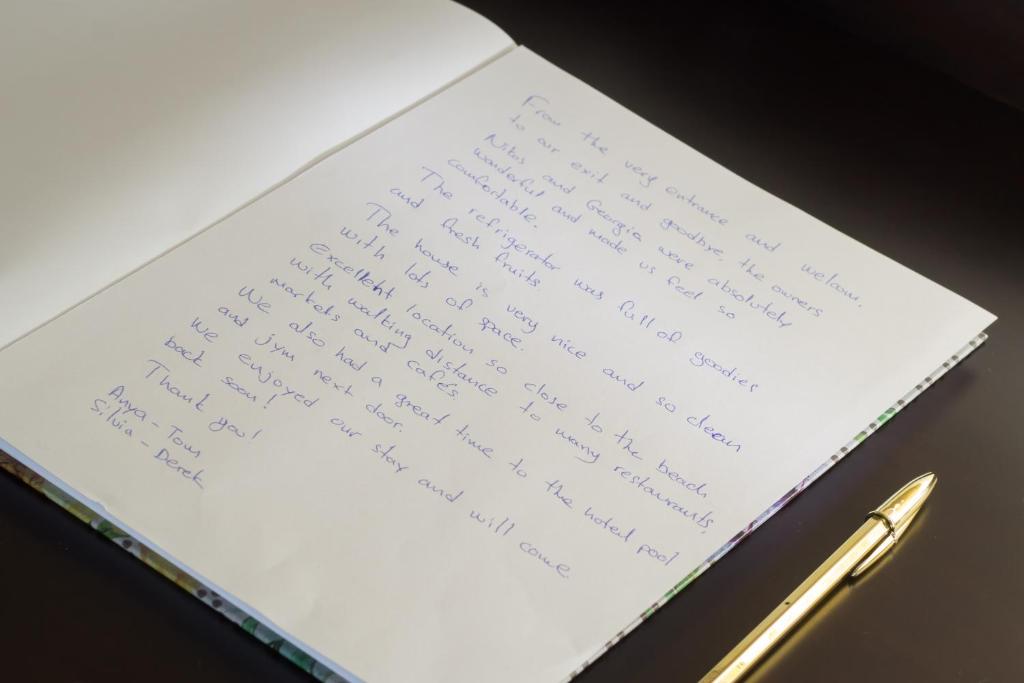 From the very entrance and welcom,
to our exit and goodbye, the owners
Nikos and Georgia were absolutely
wonderful and made us feel so
comfortable.
The refrigerator was full of goodies
and fresh fruits
The house is very nice and so clean
with lots of space.
Excellent location so close to the beach
with walking distance to many restaurants,
markets and cafés
We also had a great time to the hotel pool
and jym next door.
We enjoyed our stay and will come
back soon!
Thank you!
Anya - Tom
Silvia - Derek